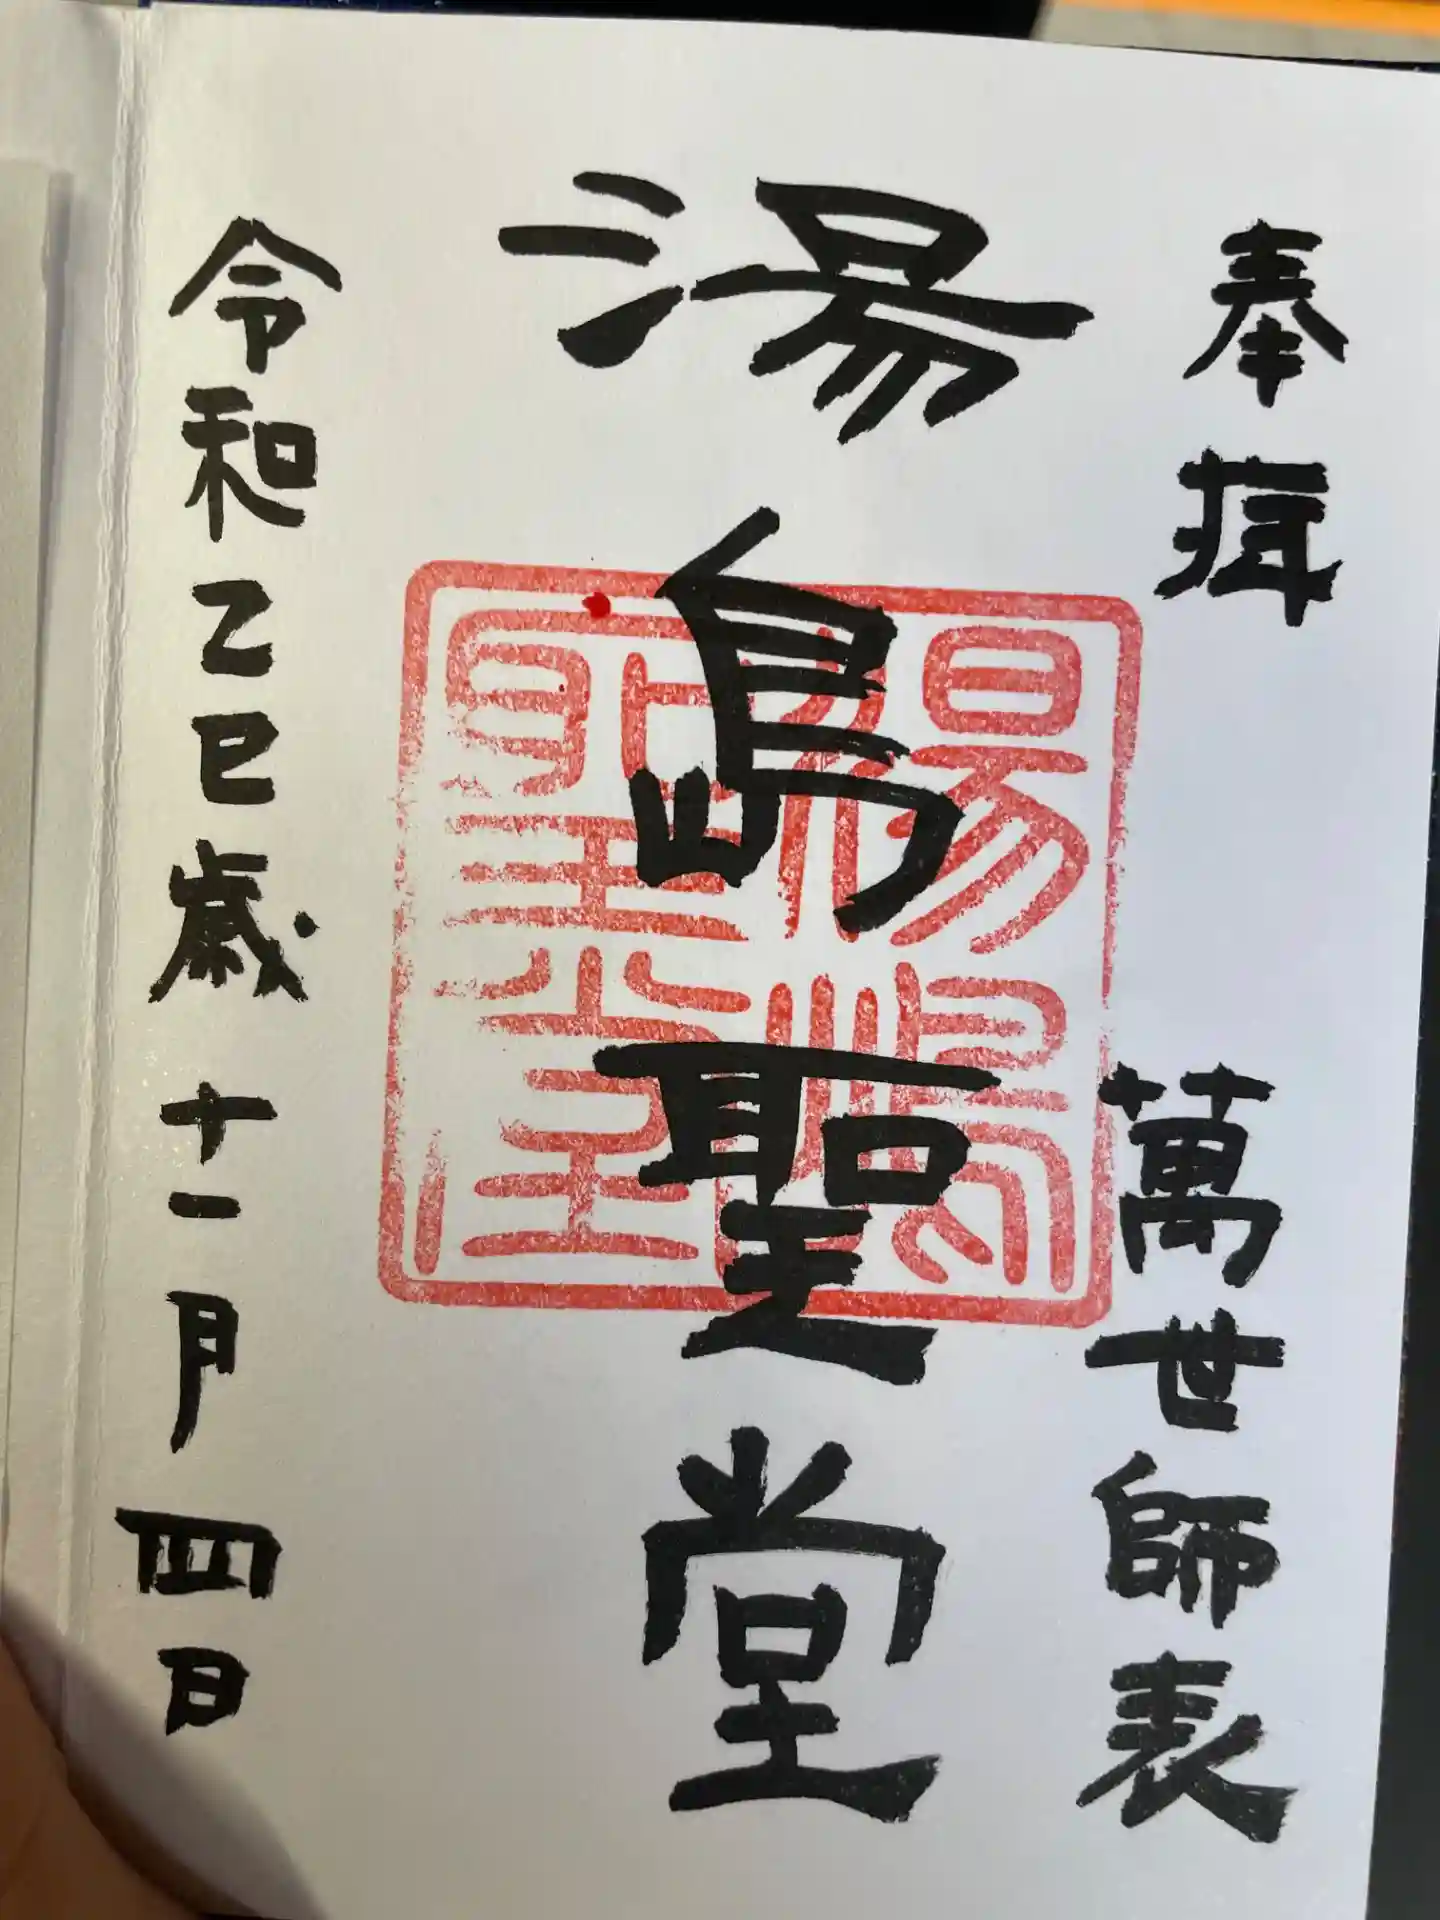 奉拝 萬世師表
湯島聖堂
湯島聖堂
令和乙巳歳十一月四日